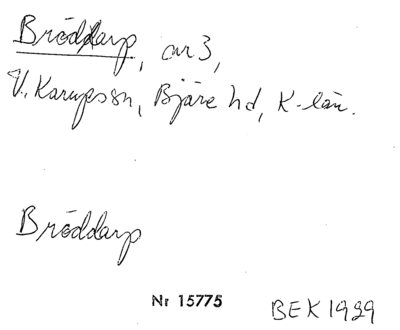 Bröddarp, cur 3,
V. Karupssn, Bjäre hd, K-län.
Bröddarp
Nr 15775
BEK 1929